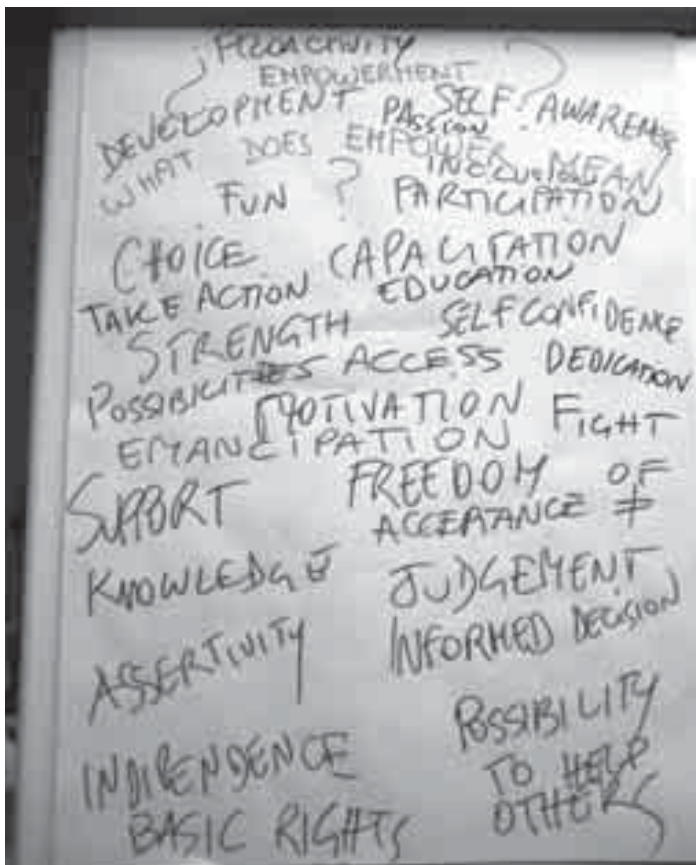 PROACTIVITY
EMPOWERMENT
DEVELOPMENT PASSION SELF AWARENESS
WHAT DOES EMPOWER MEAN
FUN ? PARTICIPATION
CHOICE CAPACITATION
TAKE ACTION EDUCATION
STRENGTH SELFCONFIDENCE
POSSIBILITIES ACCESS DEDICATION
MOTIVATION FIGHT
EMANCIPATION
SUPPORT FREEDOM OF
ACCEPTANCE ≠
KNOWLEDGE JUDGEMENT
ASSERTIVITY INFORMED DECISION
INDIPENDENCE POSSIBILITY
TO HELP
BASIC RIGHTS OTHERS